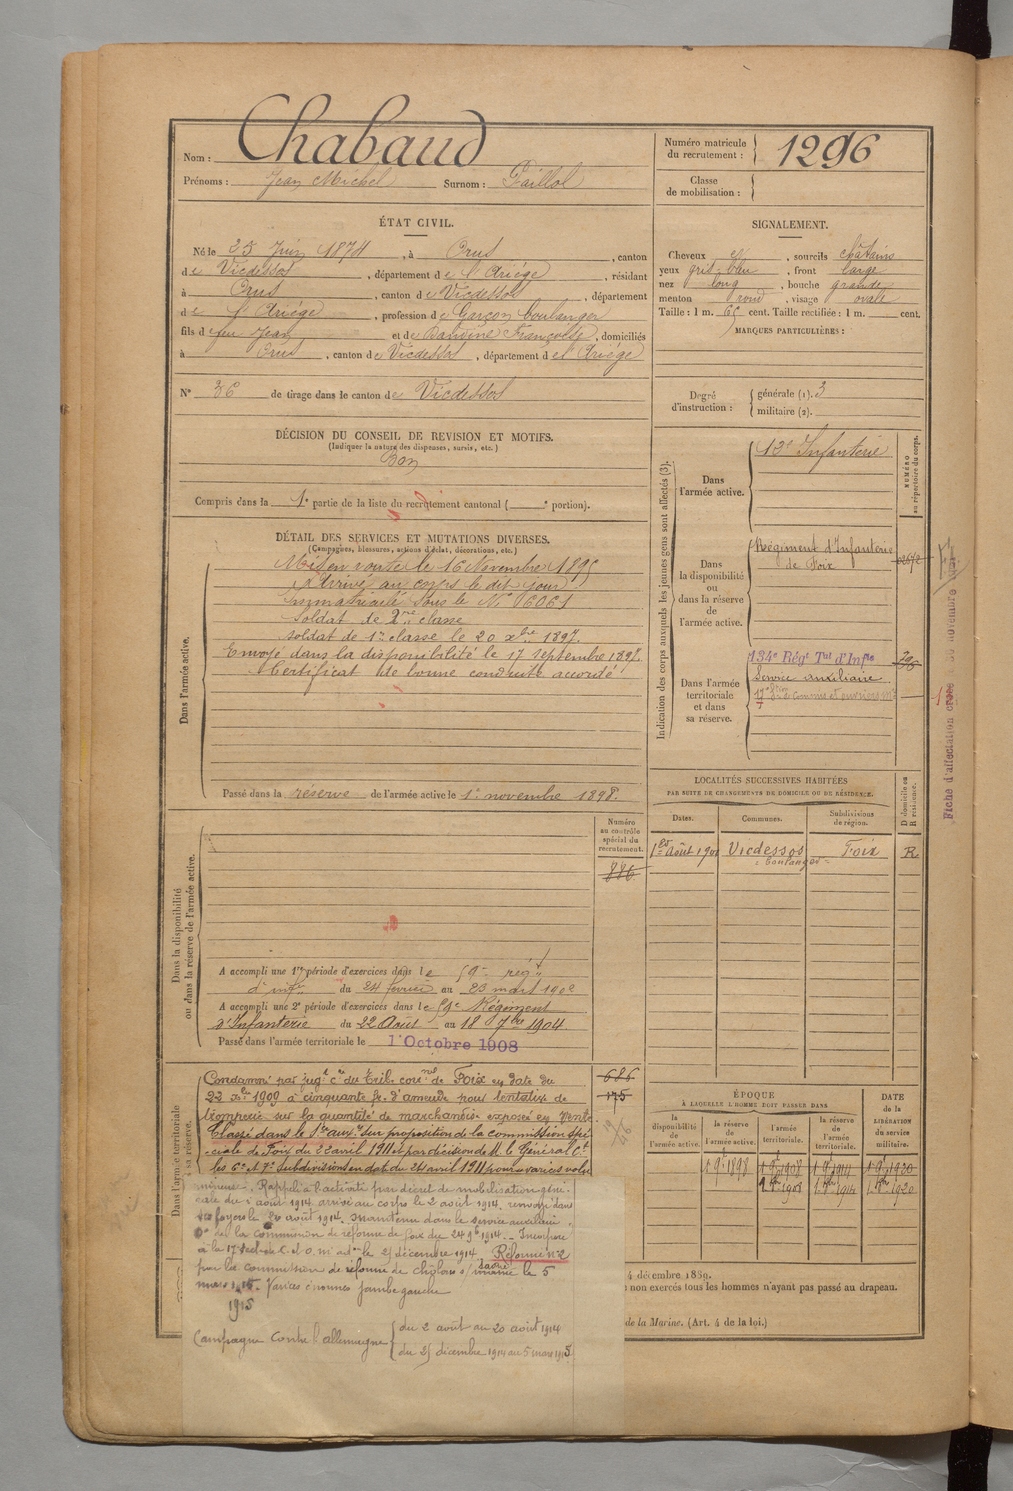 Nom : Chabaud
Prénoms : Jean Michel Surnom : Paillol
Numéro matricule du recrutement : 1296
Classe de mobilisation :
ÉTAT CIVIL.
Né le 25 Juin 1874, à Orus, canton
de Vicdessos, département de l'Ariège, résidant
à Orus, canton de Vicdessos, département
de l'Ariège, profession de Garçon boulanger
fils de feu Jean et de Françoise, domiciliés
à Orus, canton de Vicdessos, département de l'Ariège
N° 36 de tirage dans le canton de Vicdessos
SIGNALEMENT.
Cheveux et, sourcils châtains
yeux gris bleu, front large
nez long, bouche grande
menton rond, visage ovale
Taille : 1 m. 65 cent. Taille rectifiée : 1 m. cent.
MARQUES PARTICULIÈRES :
Degré d'instruction : générale (1). 3
militaire (2).
DÉCISION DU CONSEIL DE REVISION ET MOTIFS.
(Indiquer la nature des dispenses, sursis, etc.)
Bon
Compris dans la 1e partie de la liste du recrutement cantonal ( e portion).
DÉTAIL DES SERVICES ET MUTATIONS DIVERSES.
(Campagnes, blessures, actions d'éclat, décorations, etc.)
Dans l'armée active.
Mis en route le 16 Novembre 1895
Arrivé au corps le dit jour
Immatriculé sous le N° 6061
Soldat de 2me classe
soldat de 1re classe le 20 xbre 1897.
Envoyé dans la disponibilité le 17 septembre 1898.
Certificat de bonne conduite accordé
Passé dans la réserve de l'armée active le 1er novembre 1898.
Indication des corps auxquels les jeunes gens sont affectés (3).
NUMÉRO au répertoire du corps.
Dans l'armée active.
Infanterie
Dans la disponibilité ou dans la réserve de l'armée active.
Régiment d'Infanterie
de Foix
Dans l'armée territoriale et dans sa réserve.
134e Régt Tal d'Infie
Service auxiliaire
17e Son de Commis et ouvriers
Fiche d'affectation
LOCALITÉS SUCCESSIVES HABITÉES
PAR SUITE DE CHANGEMENTS DE DOMICILE OU DE RÉSIDENCE.
D domicile ou R résidence.
Dates. Communes. Subdivisions de région.
Août Vicdessos Foix R
boulanger
Dans la disponibilité ou dans la réserve de l'armée active.
Numéro au contrôle spécial du recrutement.
886
A accompli une 1re période d'exercices dans le 59e régt
d'infie du 24 février au 23 mars 1902
A accompli une 2e période d'exercices dans le 59e Régiment
d'Infanterie du 22 Août au 18 7bre 1904
Passé dans l'armée territoriale le 1 Octobre 1908
Dans l'armée territoriale
sa réserve.
Condamné par jugt cre du Trib. cornel de Foix en date du
22 xbre 1909 à cinquante fr. d'amende pour tentative de
tromperie sur la quantité de marchandise exposée en vente
Classé dans le Sce auxre sur proposition de la commission spé-
ciale de Foix du 22 avril 1911 et par décision de M. le Général Ct
les 6e et 7e Subdivisions en dat du 24 avril 1911 pour varices volu
mineuses. Rappelé à l'activité par décret de mobilisation géné-
rale du 1 août 1914 arrivé au corps le 2 août 1914. renvoyé dans
ses foyers le 20 août 1914. maintenu dans le service auxiliaire.
Don de la commission de réforme de Foix du 24 9bre 1914. Incorporé
à la 17e Section de C. et O. m. ad. le 21 décembre 1914 Réformé n° 2
par la commission de réforme de Châlons s/ Saône le 5
mars 1915. Varices énormes jambe gauche
1915
Campagne contre l'allemagne du 2 août au 20 août 1914
du 21 décembre 1914 au 5 mars 1915
686
175
ÉPOQUE
À LAQUELLE L'HOMME DOIT PASSER DANS
la disponibilité de l'armée active. la réserve de l'armée active. l'armée territoriale. la réserve de l'armée territoriale.
DATE de la LIBÉRATION du service militaire.
1 9bre 1898 1 9bre 1908 1 9bre 1914 1 9bre 1920
1 8bre 1908 1 8bre 1914 1 8bre 1920
4 décembre 1889.
non exercés tous les hommes n'ayant pas passé au drapeau.
de la Marine. (Art. 4 de la loi.)